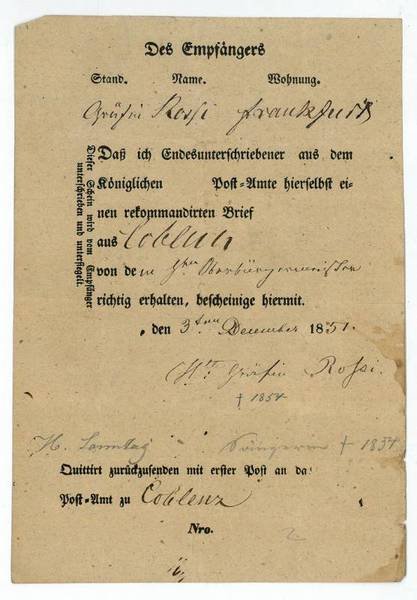 Des Empfängers
Stand. Name. Wohnung.
Gräfin Rossi Frankfurt
Dieser Schein wird dem Empfänger
unterschrieben und untersiegelt.
Daß ich Endesunterschriebener aus dem
Königlichen Post-Amte hierselbst ei-
nen rekommandirten Brief
aus Coblenz
von dem Hrn Oberbürgermeister
richtig erhalten, bescheinige hiermit.
, den 3ten December 1851.
Gräfin Rossi.
† 1854
H. Sonntag Sängerin † 1854
Quittirt zurückzusenden mit erster Post an da
Post-Amt zu Coblenz
Nro.